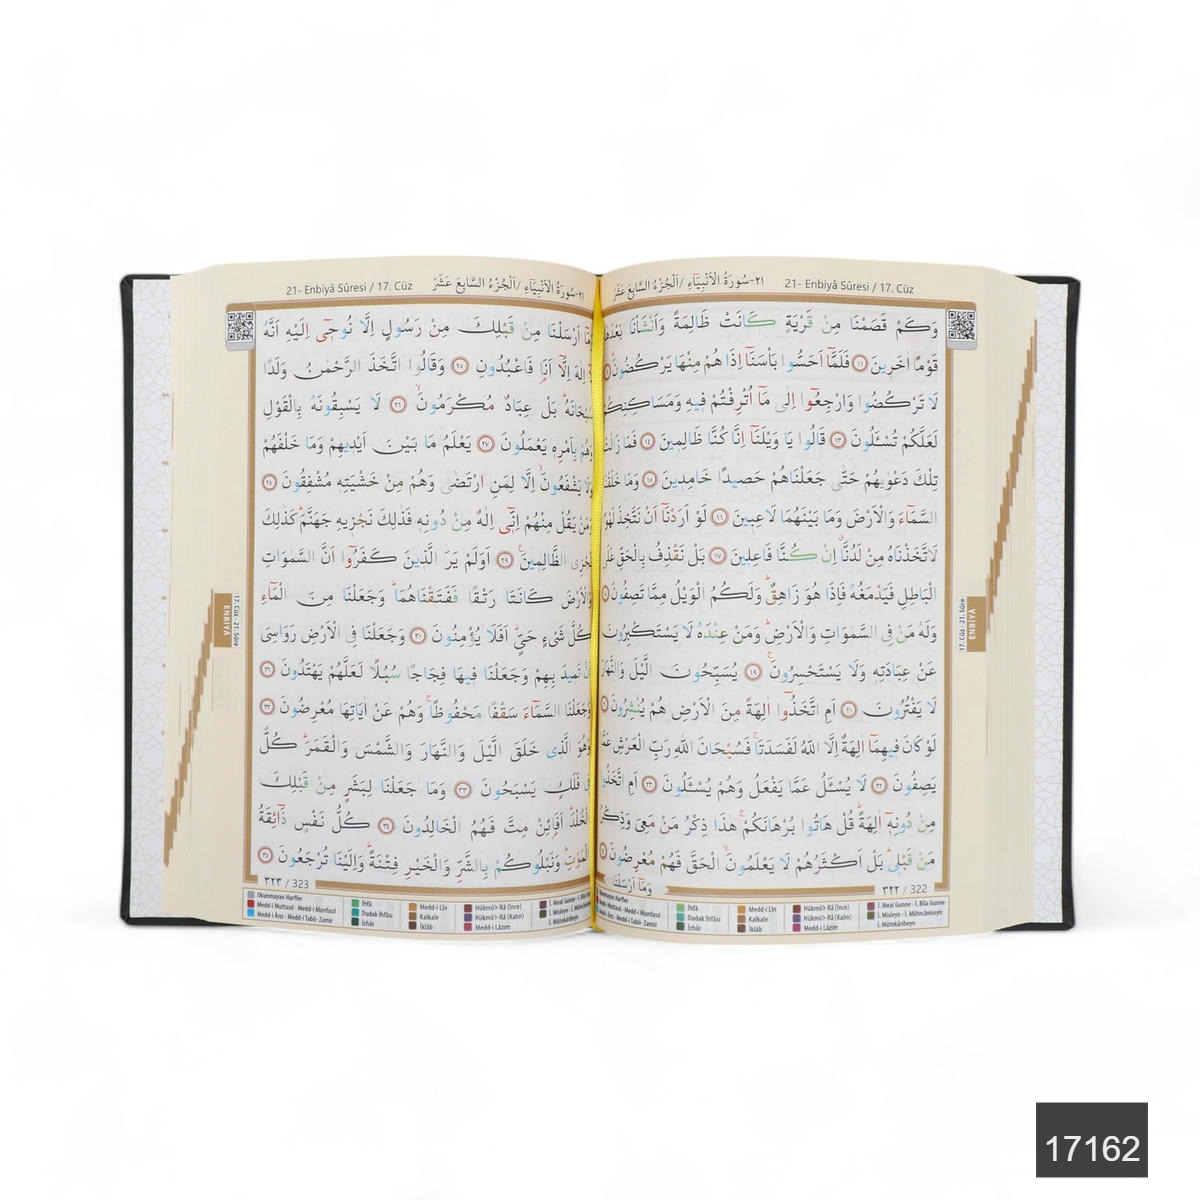 ٢١-سُورَةُ الْاَنْبِيَٓاءِ /اَلْجُزْءُ السَّابِعَ عَشَرَ
21- Enbiyâ Sûresi / 17. Cüz
وَكَمْ قَصَمْنَا مِنْ قَرْيَةٍ كَانَتْ ظَالِمَةً وَاَنْشَأْنَا بَعْدَهَا
قَوْمًا اٰخَرٖينَ ﴿١١﴾ فَلَمَّٓا اَحَسُّوا بَأْسَنَٓا اِذَا هُمْ مِنْهَا يَرْكُضُونَ
لَا تَرْكُضُوا وَارْجِعُٓوا اِلٰى مَٓا اُتْرِفْتُمْ فٖيهِ وَمَسَاكِنِكُمْ
لَعَلَّكُمْ تُسْـَٔلُونَ ﴿١٣﴾ قَالُوا يَا وَيْلَنَٓا اِنَّا كُنَّا ظَالِمٖينَ ﴿١٤﴾ فَمَا زَالَتْ
تِلْكَ دَعْوٰيهُمْ حَتّٰى جَعَلْنَاهُمْ حَصٖيدًا خَامِدٖينَ ﴿١٥﴾ وَمَا خَلَقْنَا
السَّمَٓاءَ وَالْاَرْضَ وَمَا بَيْنَهُمَا لَاعِبٖينَ ﴿١٦﴾ لَوْ اَرَدْنَٓا اَنْ نَتَّخِذَ لَهْوًا
لَاتَّخَذْنَاهُ مِنْ لَدُنَّاۗ اِنْ كُنَّا فَاعِلٖينَ ﴿١٧﴾ بَلْ نَقْذِفُ بِالْحَقِّ عَلَى
الْبَاطِلِ فَيَدْمَغُهُ فَاِذَا هُوَ زَاهِقٌۜ وَلَكُمُ الْوَيْلُ مِمَّا تَصِفُونَ
وَلَهُ مَنْ فِي السَّمٰوَاتِ وَالْاَرْضِۜ وَمَنْ عِنْدَهُ لَا يَسْتَكْبِرُونَ
عَنْ عِبَادَتِهٖ وَلَا يَسْتَحْسِرُونَۚ ﴿١٩﴾ يُسَبِّحُونَ الَّيْلَ وَالنَّهَارَ
لَا يَفْتُرُونَ ﴿٢٠﴾ اَمِ اتَّخَذُٓوا اٰلِهَةً مِنَ الْاَرْضِ هُمْ يُنْشِرُونَ
لَوْ كَانَ فٖيهِمَٓا اٰلِهَةٌ اِلَّا اللّٰهُ لَفَسَدَتَاۚ فَسُبْحَانَ اللّٰهِ رَبِّ الْعَرْشِ عَمَّا
يَصِفُونَ ﴿٢٢﴾ لَا يُسْـَٔلُ عَمَّا يَفْعَلُ وَهُمْ يُسْـَٔلُونَ ﴿٢٣﴾ اَمِ اتَّخَذُوا
مِنْ دُونِهٖٓ اٰلِهَةًۜ قُلْ هَاتُوا بُرْهَانَكُمْۚ هٰذَا ذِكْرُ مَنْ مَعِيَ وَذِكْرُ
مَنْ قَبْلٖيۜ بَلْ اَكْثَرُهُمْ لَا يَعْلَمُونَۙ الْحَقَّ فَهُمْ مُعْرِضُونَ
وَمَٓا اَرْسَلْنَا
٣٢٢ / 322
17. Cüz - 21. Sûre
ENBİYÂ
Okunmayan Harfler
Medd-i Muttasıl - Medd-i Munfasıl
Medd-i Ârız - Medd-i Tabiî - Zamir
İhfâ
Dudak İhfâsı
İzhâr
Medd-i Lîn
Kalkale
İklâb
Hükmü'r-Râ (İnce)
Hükmü'r-Râ (Kalın)
Medd-i Lâzım
İ. Meal Gunne - İ. Bila Gunne
İ. Misleyn - İ. Mütecâniseyn
İ. Mütekâribeyn
٢١-سُورَةُ الْاَنْبِيَٓاءِ /اَلْجُزْءُ السَّابِعَ عَشَرَ
21- Enbiyâ Sûresi / 17. Cüz
وَمَٓا اَرْسَلْنَا مِنْ قَبْلِكَ مِنْ رَسُولٍ اِلَّا نُوحٖٓي اِلَيْهِ اَنَّهُ
لَٓا اِلٰهَ اِلَّٓا اَنَا۬ فَاعْبُدُونِ ﴿٢٥﴾ وَقَالُوا اتَّخَذَ الرَّحْمٰنُ وَلَدًا
سُبْحَانَهُۜ بَلْ عِبَادٌ مُكْرَمُونَۙ ﴿٢٦﴾ لَا يَسْبِقُونَهُ بِالْقَوْلِ
وَهُمْ بِاَمْرِهٖ يَعْمَلُونَ ﴿٢٧﴾ يَعْلَمُ مَا بَيْنَ اَيْدٖيهِمْ وَمَا خَلْفَهُمْ
وَلَا يَشْفَعُونَۙ اِلَّا لِمَنِ ارْتَضٰى وَهُمْ مِنْ خَشْيَتِهٖ مُشْفِقُونَ ﴿٢٨﴾
وَمَنْ يَقُلْ مِنْهُمْ اِنّٖٓي اِلٰهٌ مِنْ دُونِهٖ فَذٰلِكَ نَجْزٖيهِ جَهَنَّمَۜ كَذٰلِكَ
نَجْزِي الظَّالِمٖينَ۟ ﴿٢٩﴾ اَوَلَمْ يَرَ الَّذٖينَ كَفَرُٓوا اَنَّ السَّمٰوَاتِ
وَالْاَرْضَ كَانَتَا رَتْقًا فَفَتَقْنَاهُمَاۜ وَجَعَلْنَا مِنَ الْمَٓاءِ
كُلَّ شَيْءٍ حَيٍّۜ اَفَلَا يُؤْمِنُونَ ﴿٣٠﴾ وَجَعَلْنَا فِي الْاَرْضِ رَوَاسِيَ
اَنْ تَمٖيدَ بِهِمْ وَجَعَلْنَا فٖيهَا فِجَاجًا سُبُلًا لَعَلَّهُمْ يَهْتَدُونَ ﴿٣١﴾
وَجَعَلْنَا السَّمَٓاءَ سَقْفًا مَحْفُوظًاۚ وَهُمْ عَنْ اٰيَاتِهَا مُعْرِضُونَ ﴿٣٢﴾
وَهُوَ الَّذٖي خَلَقَ الَّيْلَ وَالنَّهَارَ وَالشَّمْسَ وَالْقَمَرَۜ كُلٌّ
فٖي فَلَكٍ يَسْبَحُونَ ﴿٣٣﴾ وَمَا جَعَلْنَا لِبَشَرٍ مِنْ قَبْلِكَ
الْخُلْدَۜ اَفَا۬ئِنْ مِتَّ فَهُمُ الْخَالِدُونَ ﴿٣٤﴾ كُلُّ نَفْسٍ ذَٓائِقَةُ
الْمَوْتِۜ وَنَبْلُوكُمْ بِالشَّرِّ وَالْخَيْرِ فِتْنَةًۜ وَاِلَيْنَا تُرْجَعُونَ ﴿٣٥﴾
٣٢٣ / 323
17. Cüz - 21. Sûre
ENBİYÂ
Okunmayan Harfler
Medd-i Muttasıl - Medd-i Munfasıl
Medd-i Ârız - Medd-i Tabiî - Zamir
İhfâ
Dudak İhfâsı
İzhâr
Medd-i Lîn
Kalkale
İklâb
Hükmü'r-Râ (İnce)
Hükmü'r-Râ (Kalın)
Medd-i Lâzım
İ. Meal Gunne - İ. Bila
İ. Misleyn - İ.
İ. Mütekâribeyn
17162